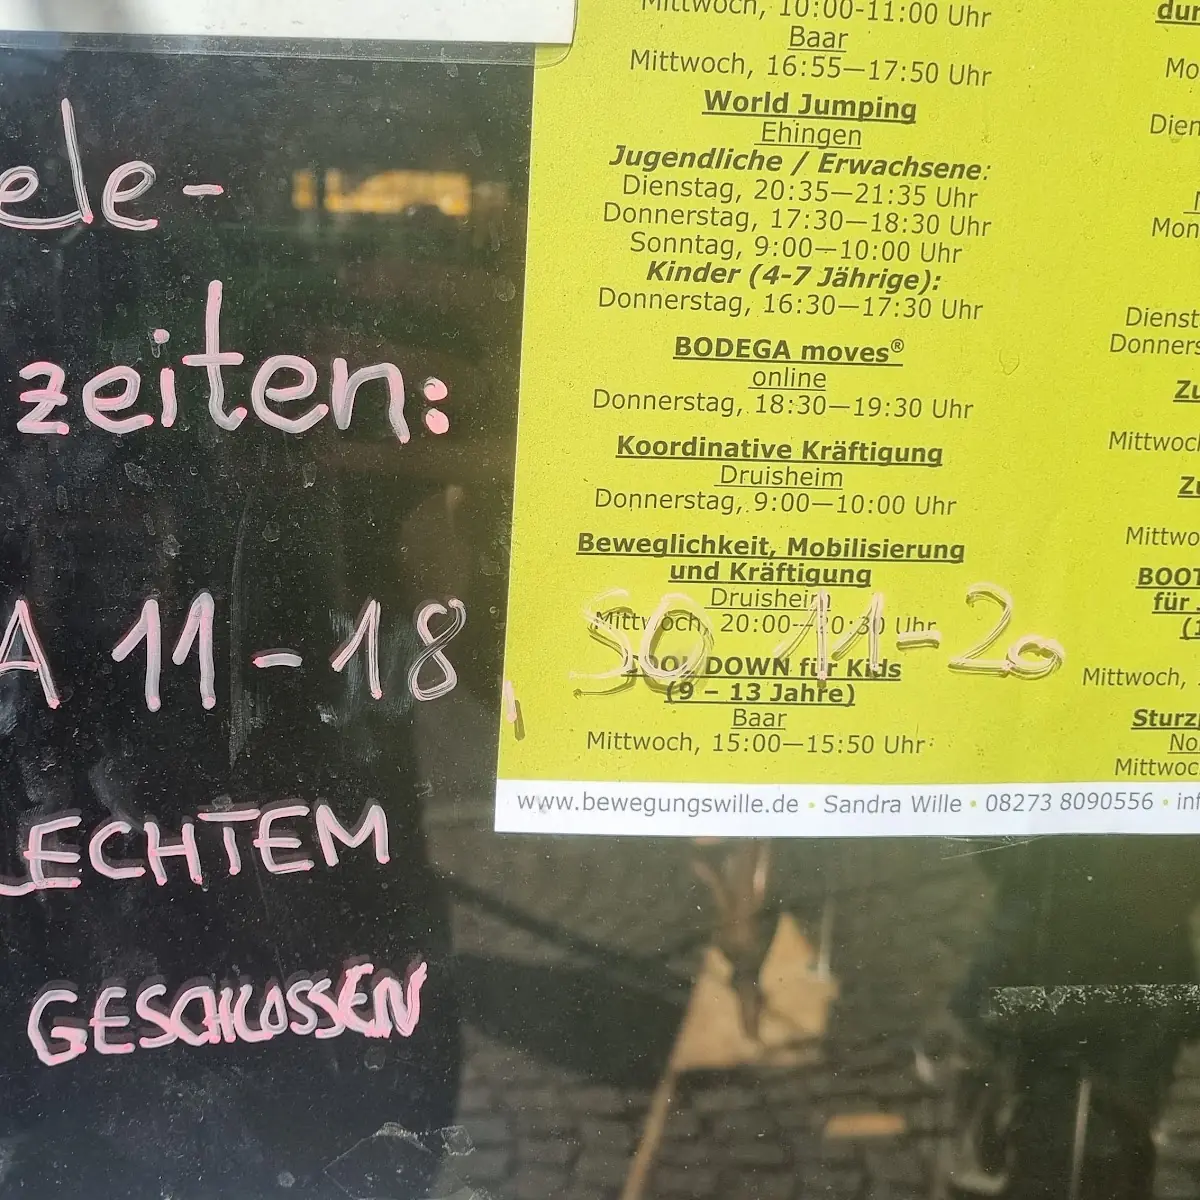 ele-
zeiten:
A 11-18, SO 11-20
ECHTEM
GESCHLOSSEN
Mittwoch, 10:00-11:00 Uhr
Baar
Mittwoch, 16:55—17:50 Uhr
World Jumping
Ehingen
Jugendliche / Erwachsene:
Dienstag, 20:35—21:35 Uhr
Donnerstag, 17:30—18:30 Uhr
Sonntag, 9:00—10:00 Uhr
Kinder (4-7 Jährige):
Donnerstag, 16:30—17:30 Uhr
BODEGA moves®
online
Donnerstag, 18:30—19:30 Uhr
Koordinative Kräftigung
Druisheim
Donnerstag, 9:00—10:00 Uhr
Beweglichkeit, Mobilisierung
und Kräftigung
Druisheim
Mittwoch, 20:00—20:30 Uhr
COOL DOWN für Kids
(9 – 13 Jahre)
Baar
Mittwoch, 15:00—15:50 Uhr
dur
Mo
Dien
Mon
Dienst
Donners
Zu
Mittwoch
Zu
Mittwo
BOOT
für
(1
Mittwoch,
Sturzp
No
Mittwoc
www.bewegungswille.de • Sandra Wille • 08273 8090556 • inf